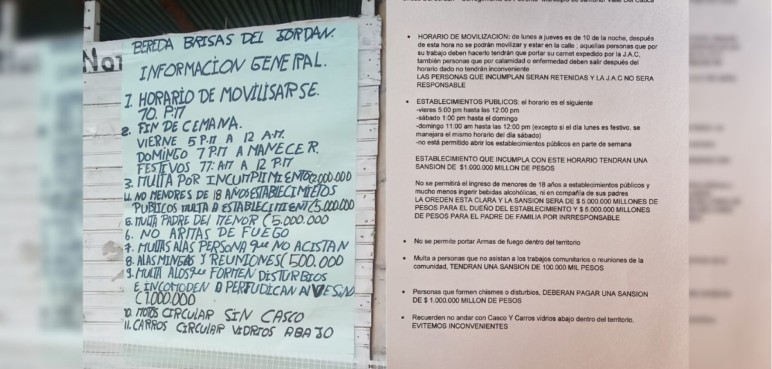 Not
BEREDA BRISAS DEL JORDAN.
INFORMACION GENERAL.
1. HORARIO DE MOVILISARSE.
10. P.M
2. FIN DE CEMANA.
VIERNE 5 P.M A 12 A.M.
DOMINGO 7 P.M A MANECER
FESTIVOS 11: A.M A 12 P.M
3. MULTA POR INCUMPLIMIENTO (2.000.000
4. NO MENORES DE 18 AÑOS ESTABLECIMIETOS
PUBLICOS MULTA A ESTABLECIMIENT (5.000.000
5. MULTA PADRE DEL MENOR (5.000.000
6. NO ARMAS DE FUEGO
7. MULTAS ALAS PERSONA que NO ACISTAN
8. ALAS MINGAS Y REUNIONES (500.000
9. MULTA ALOS que FORMEN DISTURBIOS
E INCOMODEN O PERFUDICAN AL VESIN
(1.000.000
10. MOTOS CIRCULAR SIN CASCO
11. CARROS CIRCULAR VIDRIOS ABAJO
• HORARIO DE MOVILIZACION: de lunes a jueves es de 10 de la noche, después
de esta hora no se podrán movilizar y estar en la calle ; aquellas personas que por
su trabajo deben hacerlo tendrán que portar su carnet expedido por la J.A.C,
también personas que por calamidad o enfermedad deben salir después del
horario dado no tendrán inconveniente
LAS PERSONAS QUE INCUMPLAN SERAN RETENIDAS Y LA J.A.C NO SERA
RESPONSABLE
• ESTABLECIMIENTOS PUBLICOS: el horario es el siguiente
-viernes 5:00 pm hasta las 12:00 pm
-sábado 1:00 pm hasta el domingo
-domingo 11:00 am hasta las 12:00 pm (excepto si el día lunes es festivo, se
manejara el mismo horario del día sábado)
-no está permitido abrir los establecimientos públicos en parte de semana
ESTABLECIMIENTO QUE INCUMPLA CON ESTE HORARIO TENDRAN UNA
SANSION DE $1.000.000 MILLON DE PESOS
No se permitirá el ingreso de menores de 18 años a establecimientos públicos y
mucho menos ingerir bebidas alcohólicas, ni en compañía de sus padres
LA OREDEN ESTA CLARA Y LA SANSION SERA DE $ 5.000.000 MILLONES DE
PESOS PARA EL DUEÑO DEL ESTABLECIMIENTO Y $ 5.000.000 MILLONES
DE PESOS PARA EL PADRE DE FAMILIA POR INRRESPONSABLE
• No se permite portar Armas de fuego dentro del territorio
• Multa a personas que no asistan a los trabajos comunitarios o reuniones de la
comunidad, TENDRAN UNA SANSION DE 100.000 MIL PESOS
• Personas que formen chismes o disturbios, DEBERAN PAGAR UNA SANSION
DE $ 1.000.000 MILLON DE PESOS
• Recuerden no andar con Casco Y Carros vidrios abajo dentro del territorio.
EVITEMOS INCONVENIENTES